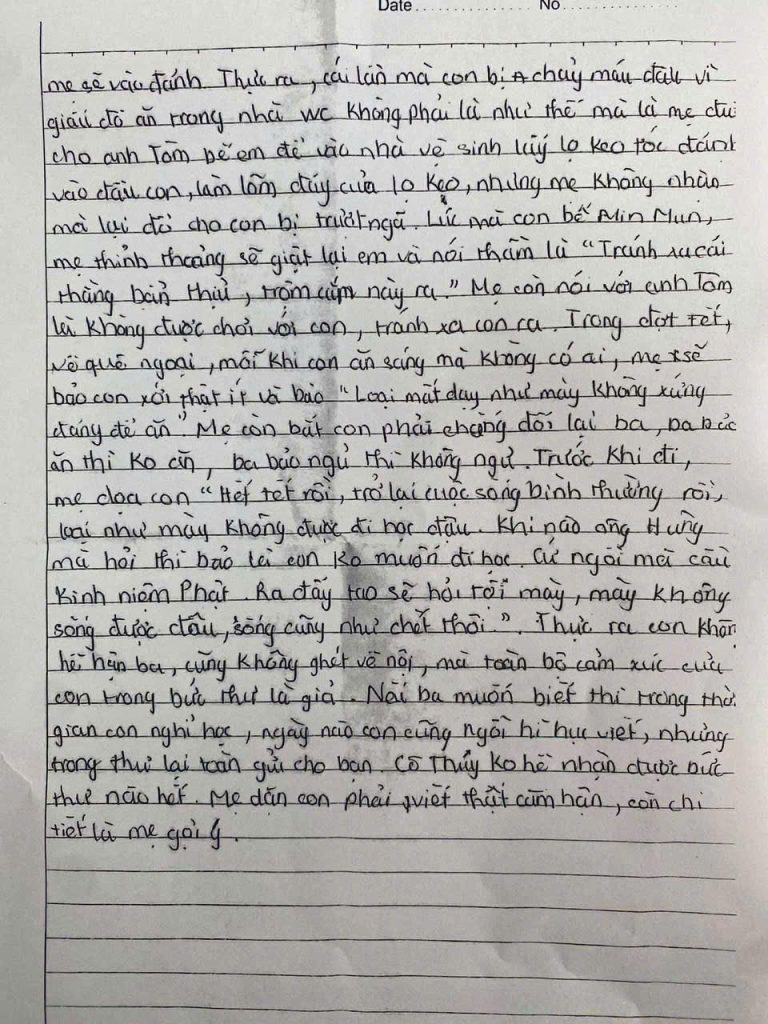 Date.............. No..............
mẹ sẽ vào đánh. Thực ra, cái lần mà con bị chảy máu đầu vì
giấu đồ ăn trong nhà wc không phải là như thế mà là mẹ
cho anh Tôm bế em để vào nhà vệ sinh lấy lọ keo tóc đánh
vào đầu con, làm lõm đáy của lọ keo, nhưng mẹ không nhận
mà lại đổ cho con bị trượt ngã. Lúc mà con bế Min Mun,
mẹ thỉnh thoảng sẽ giật lại em và nói thầm là "Tránh xa cái
thằng bẩn thỉu, trộm cắp này ra." Mẹ còn nói với anh Tôm
là không được chơi với con, tránh xa con ra. Trong đợt tết,
về quê ngoại, mỗi khi con ăn sáng mà không có ai, mẹ sẽ
bảo con xới thật ít và bảo "Loại mất dạy như mày không xứng
đáng để ăn". Mẹ còn bắt con phải chống đối lại ba, ba bảo
ăn thì ko ăn, ba bảo ngủ thì không ngủ. Trước khi đi,
mẹ dọa con "Hết tết rồi, trở lại cuộc sống bình thường rồi,
loại như mày không được đi học đâu. Khi nào ông Hưng
mà hỏi thì bảo là con ko muốn đi học. Cứ ngồi mà cầu
kinh niệm Phật. Ra đấy tao sẽ hỏi tội mày, mày không
sống được đâu, sống cũng như chết thôi.". Thực ra con không
hề hận ba, cũng không ghét về nội, mà toàn bộ cảm xúc của
con trong bức thư là giả. Nếu ba muốn biết thì trong thời
gian con nghỉ học, ngày nào con cũng ngồi hì hục viết, nhưng
trong thư lại toàn gửi cho bạn. Cô Thủy ko hề nhận được bức
thư nào hết. Mẹ dặn con phải viết thật căm hận, còn chi
tiết là mẹ gợi ý.